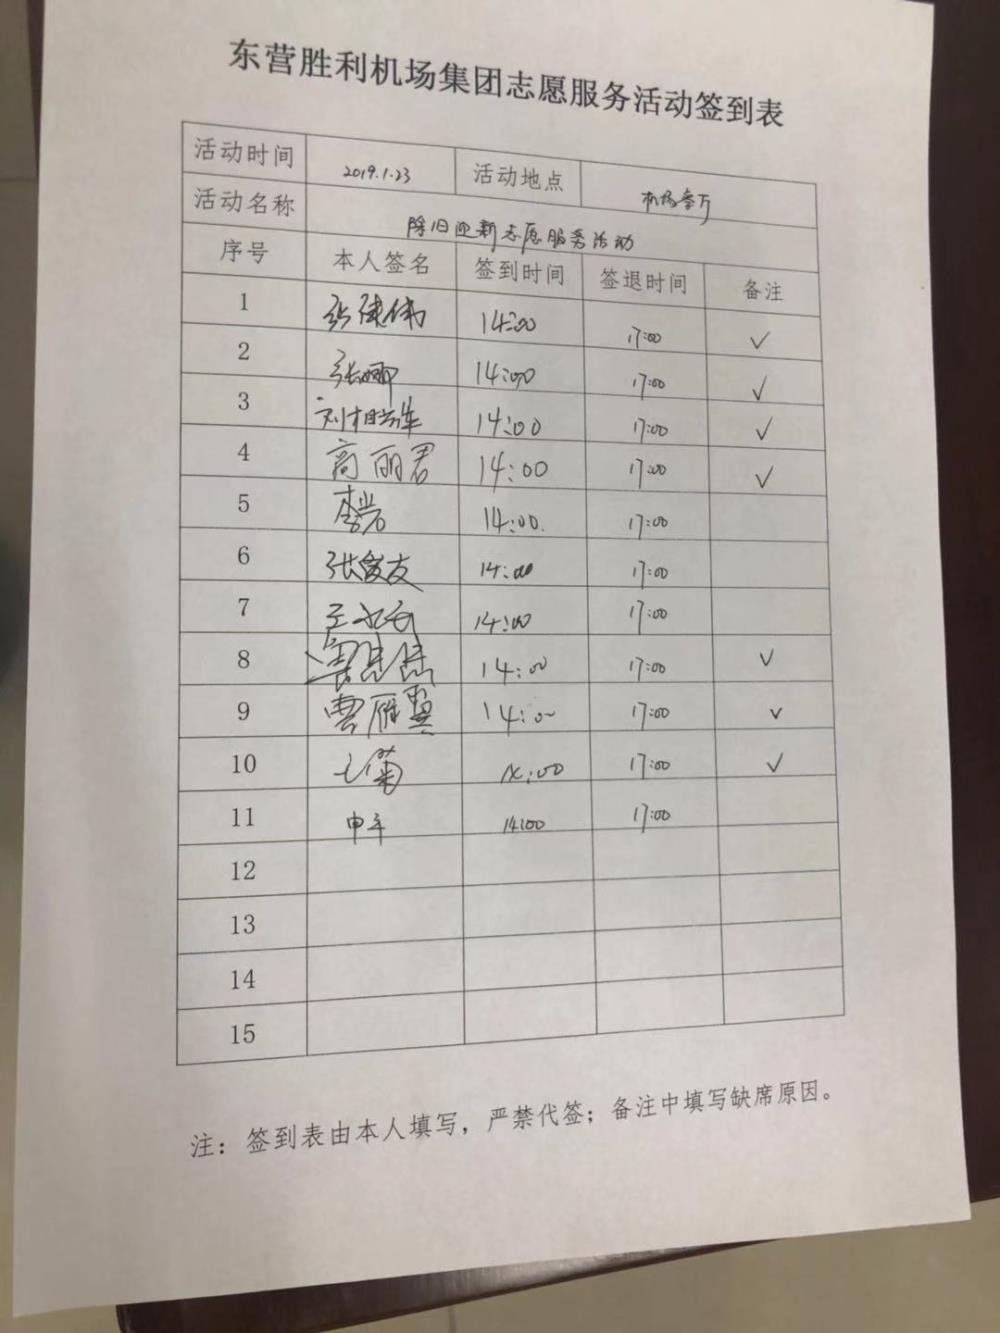 东营胜利机场集团志愿服务活动签到表
活动时间 2019.1.23 活动地点 机场餐厅
活动名称 除旧迎新志愿服务活动
序号 本人签名 签到时间 签退时间 备注
1 14:00 17:00 ✓
2 张娜 14:00 17:00 ✓
3 14:00 17:00 ✓
4 高丽君 14:00 17:00 ✓
5 李岩 14:00. 17:00
6 14:00 17:00
7 14:00 17:00
8 14:00 17:00 ✓
9 曹雁翼 14:00 17:00 ✓
10 14:00 17:00 ✓
11 14:00 17:00
12
13
14
15
注：签到表由本人填写，严禁代签；备注中填写缺席原因。